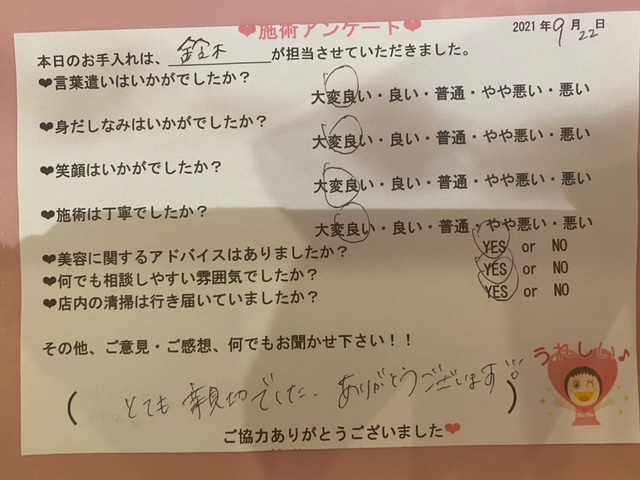 ❤施術アンケート❤
2021年9月22日
本日のお手入れは、鈴木が担当させていただきました。
❤言葉遣いはいかがでしたか？
大変良い・良い・普通・やや悪い・悪い
❤身だしなみはいかがでしたか？
大変良い・良い・普通・やや悪い・悪い
❤笑顔はいかがでしたか？
大変良い・良い・普通・やや悪い・悪い
❤施術は丁寧でしたか？
大変良い・良い・普通・やや悪い・悪い
❤美容に関するアドバイスはありましたか？ YES or NO
❤何でも相談しやすい雰囲気でしたか？ YES or NO
❤店内の清掃は行き届いていましたか？ YES or NO
その他、ご意見・ご感想、何でもお聞かせ下さい！！
うれしい♪
(とても親切でした、ありがとうございます!!)
ご協力ありがとうございました❤